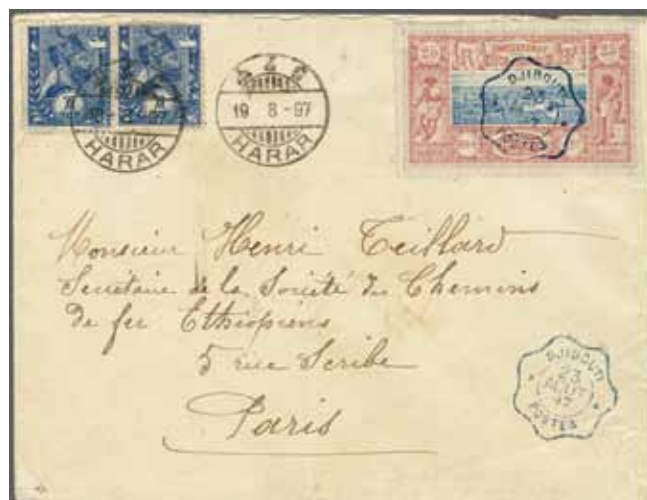 HARAR
19 8 - 97
HARAR
25
25
DJIBOUTI
23
POSTES
Monsieur Henri Teillard
Secrétaire de la Société des Chemins
de fer Ethiopiens
5 rue Scribe
Paris
DJIBOUTI
23
AOUT
97
POSTES